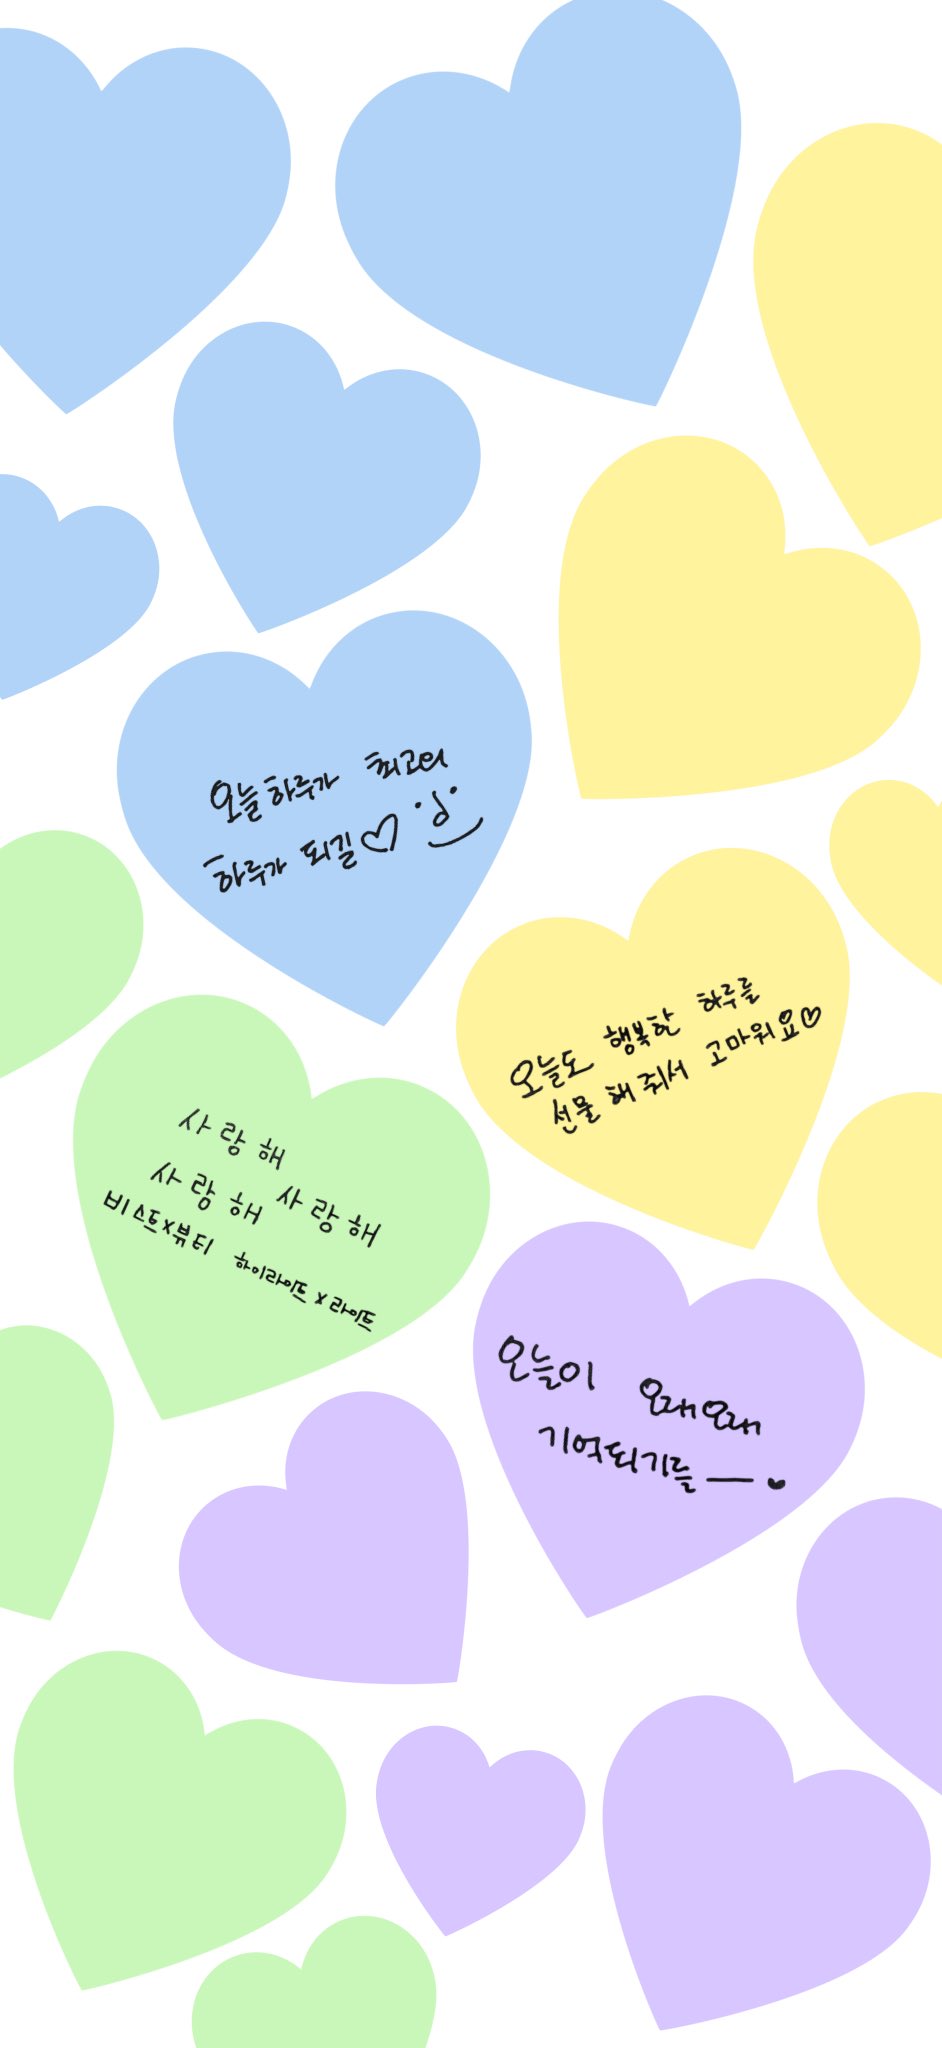 오늘하루가 최고의
하루가 되길♡
오늘도 행복한 하루를
선물해줘서 고마워요♡
사랑해
사랑해 사랑해
비스트x뷰티 하이라이트x라이트
오늘이 오래오래
기억되기를 — ♥